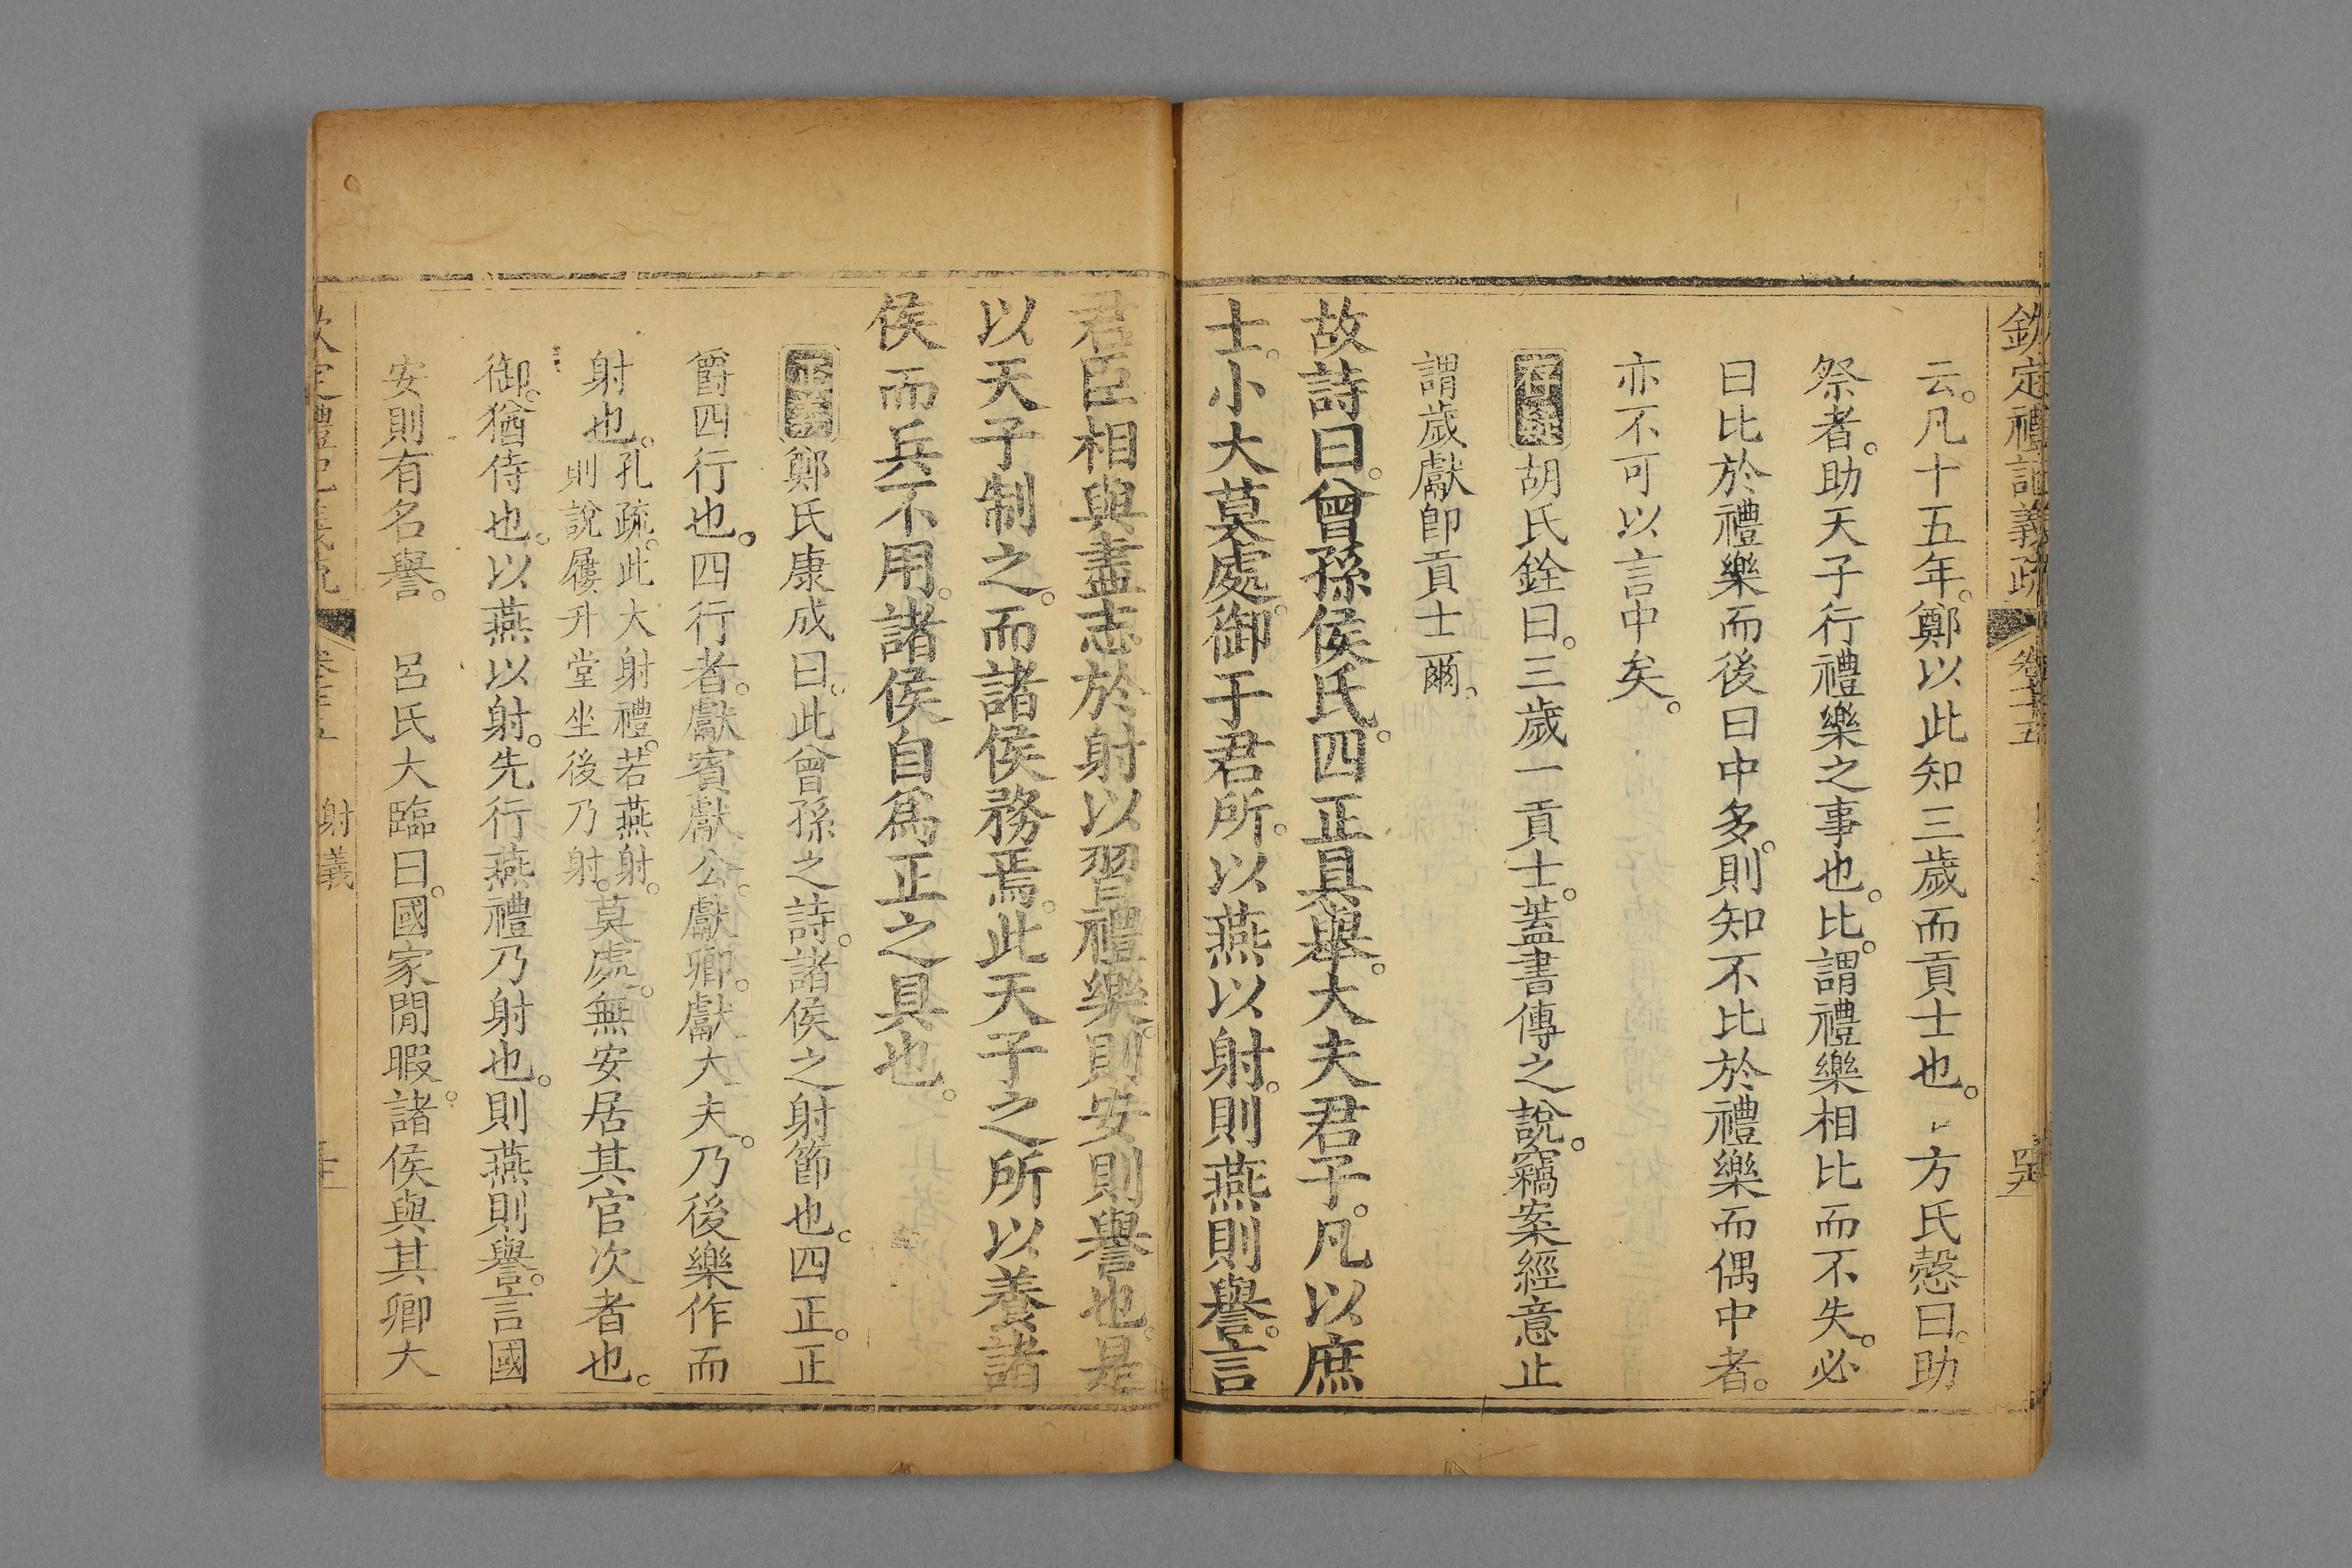 欽定禮記義疏 卷七十五
云。凡十五年。鄭以此知三歲而貢士也。方氏慤曰。助
祭者。助天子行禮樂之事也。比。謂禮樂相比而不失。必
曰比於禮樂而後曰中多。則知不比於禮樂而偶中者。
亦不可以言中矣。
存疑 胡氏銓曰。三歲一貢士。蓋書傳之說。竊案經意止
謂歲獻卽貢士爾。
故詩曰。曾孫侯氏。四正具舉。大夫君子。凡以庶
士。小大莫處。御于君所。以燕以射。則燕則譽。言
君臣相與盡志於射以習禮樂。則安則譽也。是
以天子制之。而諸侯務焉。此天子之所以養諸
侯而兵不用。諸侯自爲正之具也。
正義 鄭氏康成曰。此曾孫之詩。諸侯之射節也。四正。正
爵四行也。四行者。獻賓獻公。獻卿。獻大夫。乃後樂作而
射也。孔疏。此大射禮。若燕射。則說屨升堂坐後乃射。莫處。無安居其官次者也。
御。猶侍也。以燕以射。先行燕禮乃射也。則燕則譽。言國
安則有名譽。 呂氏大臨曰。國家閒暇。諸侯與其卿大
射義